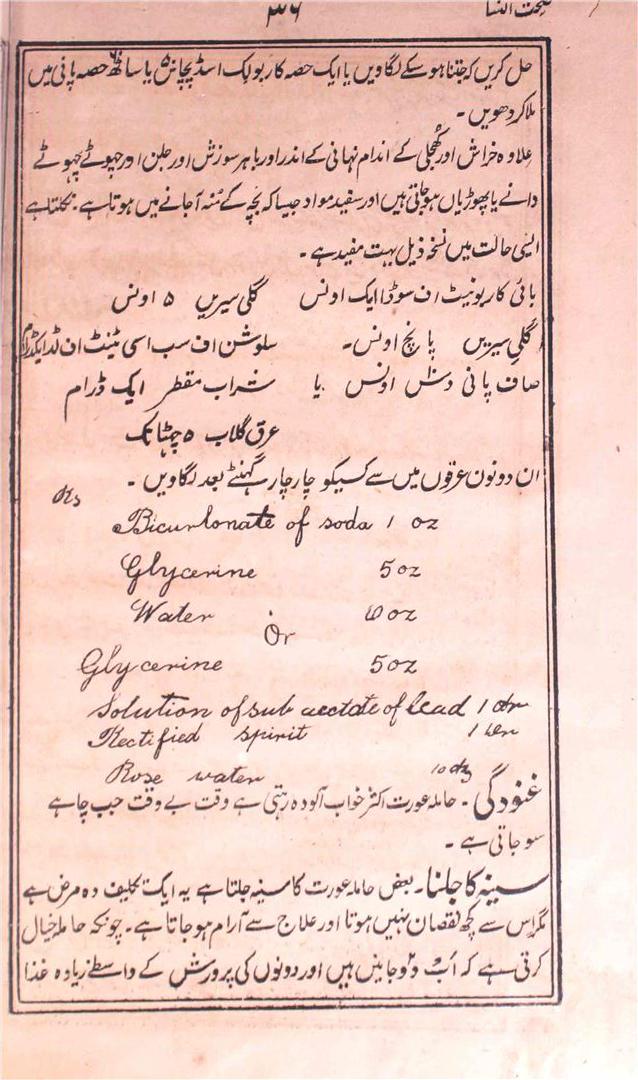 ۳۶
حل کریں کہ جتنا ہو سکے لگاویں یا ایک حصہ کاربولک اسڈ پچاس یا ساٹھ حصہ پانی میں
ملا کر دھویں -
علاوہ خراش اور کھجلی کے اندام نہانی کے اندر اور باہر سوزش اور جلن اور چھوٹے چھوٹے
دانے یا پھوڑیاں ہو جاتی ہیں اور سفید مواد جیسا کہ بچہ کے منہ آ جانے میں ہوتا ہے - نکلتا ہے
ایسی حالت میں نسخہ ذیل بہت مفید ہے -
بائی کاربونیٹ اف سوڈا ایک اونس گلی سیریں ۵ اونس
گلی سیریں پانچ اونس - سلوشن اف سب اسی ٹیٹ اف لڈ ایکڈرام
صاف پانی دس اونس یا شراب مقطر ایک ڈرام
عرق گلاب ۵ چھٹانک
ان دونوں عرقوں میں سے کسیکو چار چار گھنٹے بعد لگاویں -
Bicurbonate of soda 1 oz
Glycerine 5 oz
Water 10 oz
Or
Glycerine 5 oz
Solution of sub acetate of lead 1 dr
Rectified spirit 1
Rose water 10
غنودگی - حاملہ عورت اکثر خواب آلودہ رہتی ہے وقت بے وقت جب چاہے
سو جاتی ہے -
سینہ کا جلنا - بعض حاملہ عورت کا سینہ جلتا ہے یہ ایک تکلیف دہ مرض ہے
مگر اس سے کچھ نقصان نہیں ہوتا اور علاج سے آرام ہو جاتا ہے - چونکہ حاملہ خیال
کرتی ہے کہ اب دو جانیں ہیں اور دونوں کی پرورش کے واسطے زیادہ غذا